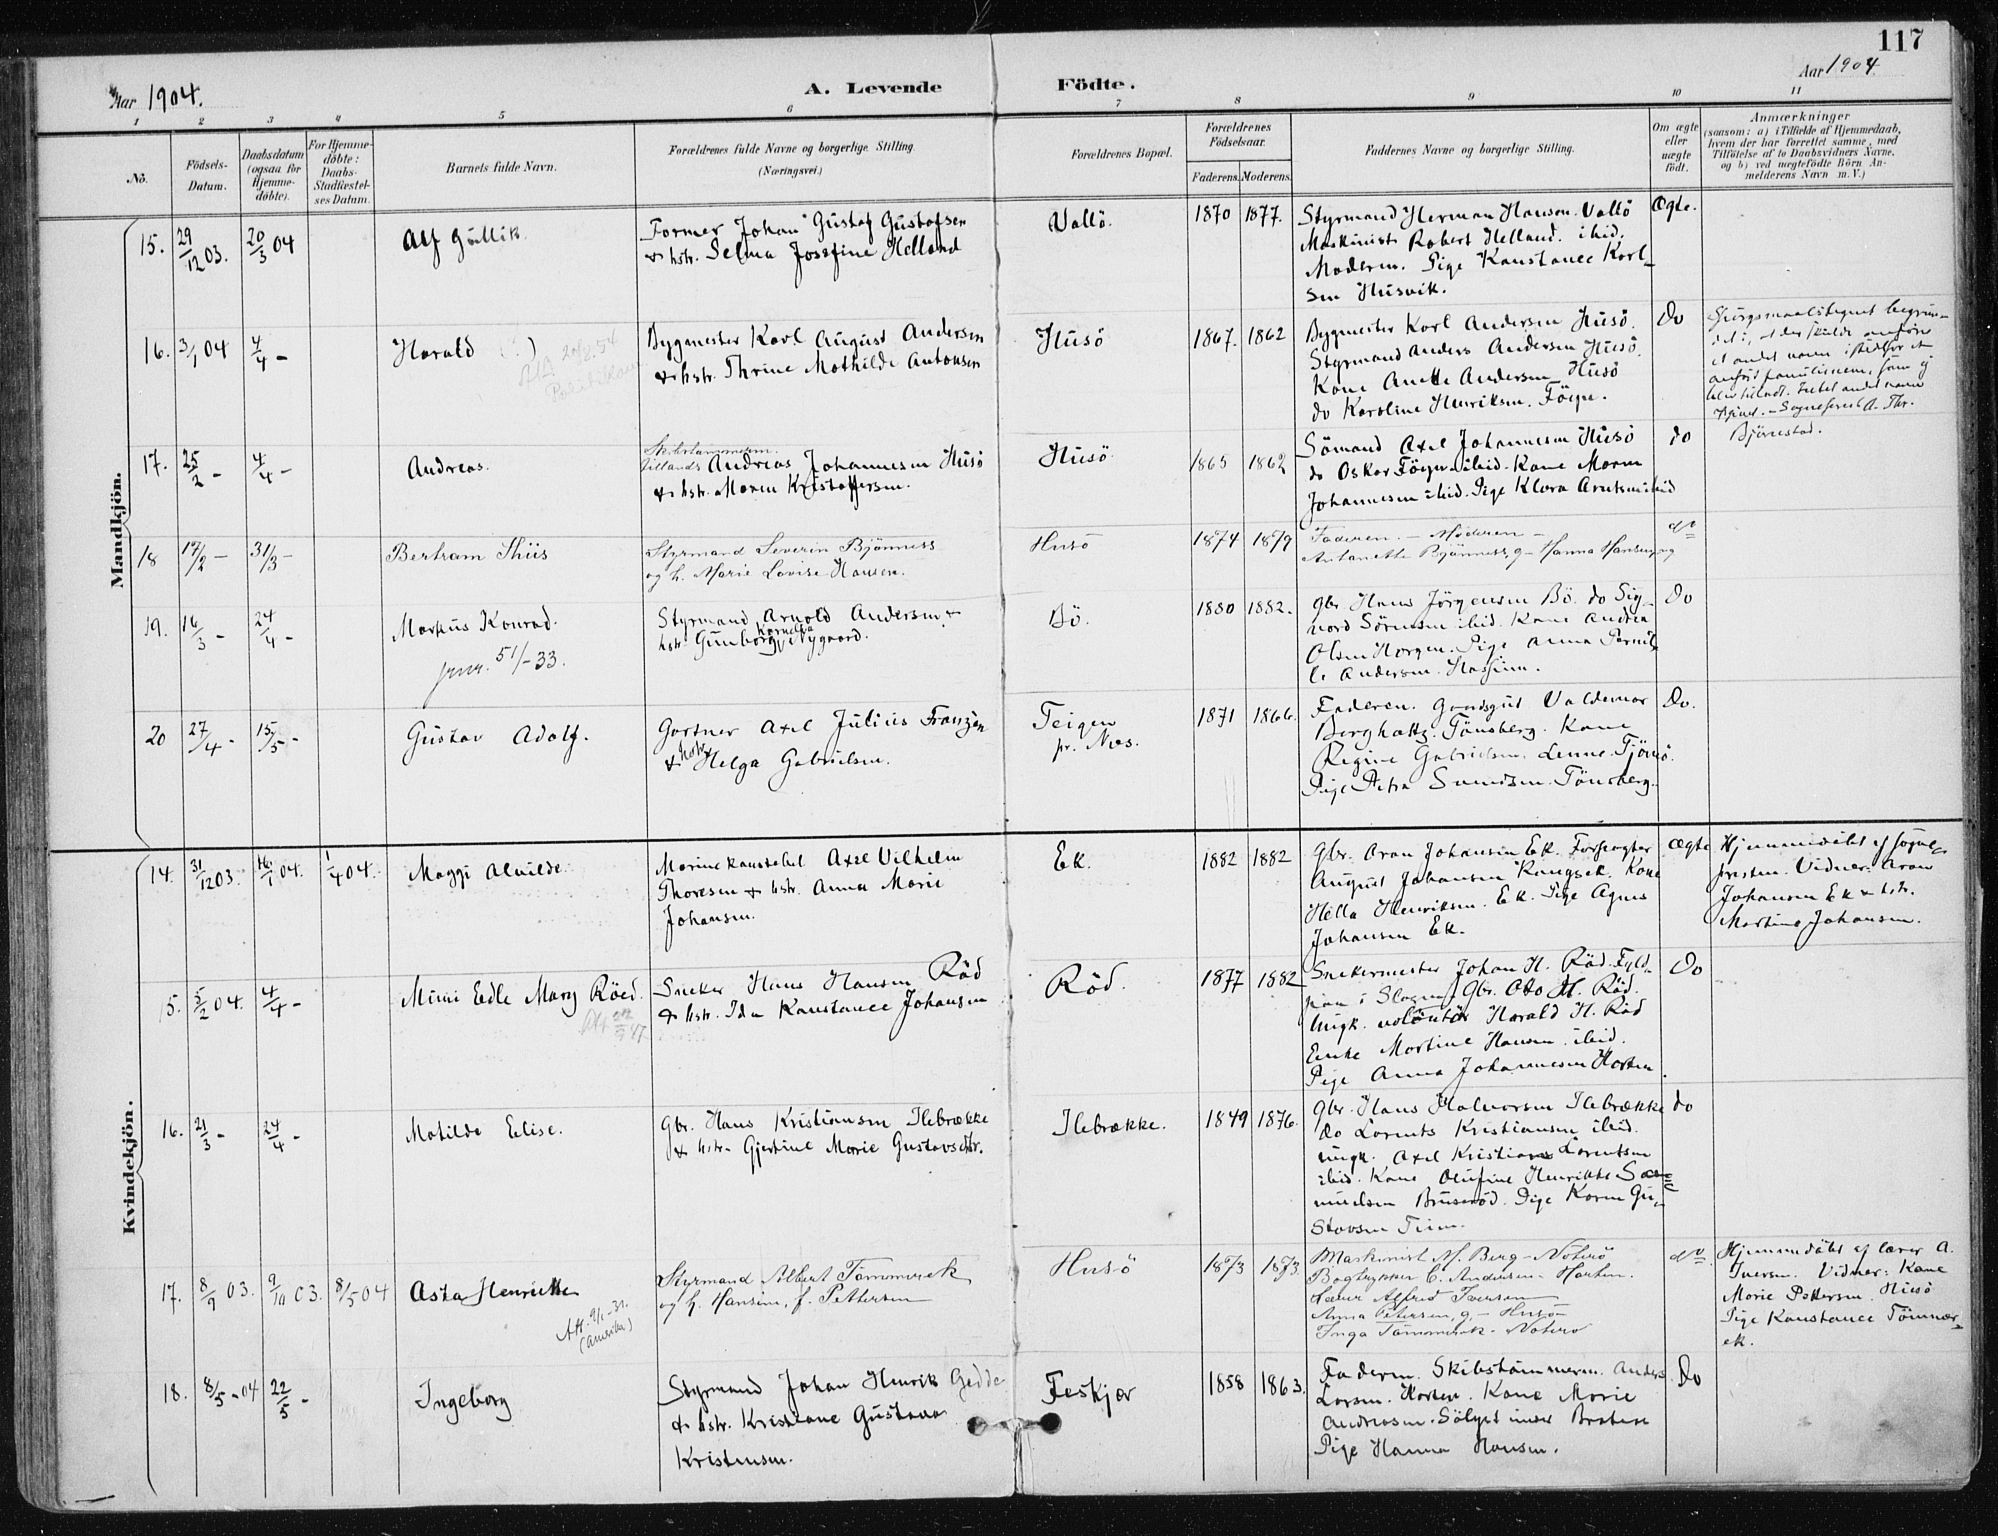 117
Aar 1904.
A. Levende Födte.
Aar 1904.
1 2 3 4 5 6 7 8 9 10 11
No.
Födsels-
Datum.
Daabsdatum
(ogsaa for
Hjemme-
døbte).
For Hjemme-
døbte:
Daabs-
Stadfæstel-
ses Datum.
Barnets fulde Navn.
Forældrenes fulde Navne og borgerlige Stilling.
(Næringsvei.)
Forældrenes Bopæl.
Forældrenes
Födselsaar.
Faderens. Moderens.
Faddernes Navne og borgerlige Stilling.
Om ægte
eller
uægte
født.
Anmærkninger
(saasom: a) i Tilfælde af Hjemmedaab,
hvem der har forrettet samme, med
Tilföielse af to Daabsvidners Navne,
og b) ved uægtefödte Börn An-
melderens Navn m. V.)
Mandkjön.
15. 29/12 03. 20/3 04
Alf Gullik.
Former Johan Gustaf Gustafsen
& hstr. Selma Josefine Helland
Vallö.
1870 1877.
Styrmand Herman Hansen. Vallö
Maskinist Robert Helland. ibid.
Moderen. Pige Konstance Karl-
sen Husvik.
Ægte.
16. 3/1 04 4/4 -
Harald
Bygmester Karl August Andersen
& hstr. Thrine Mathilde Antonsen
Husö
1867. 1862
Bygmester Karl Andersen Husö.
Styrmand Anders Andersen Husö.
Kone Anette Andersen Husö
do Karoline Henriksen. Föyn.
Do
Spörgsmaalstegnet begrun-
det i, at der skulde anföres
et andet navn istedfor et
anfört familienavn, som ej
blev tilladt. Intet andet navn
- Sogneprest A. Thr.
Björnestad.
17. 25/2 - 4/4 -
Andreas.
Skibstömmerm.
Andreas Johannesen Husö
& hstr. Maren Kristoffersen.
Husö.
1865 1862
Sömand Axel Johannesen Husö
do Oskar Föyn ibid. Kone Maren
Johannesen ibid. Pige Klara Arntsen ibid
do
18 17/2 - 31/3 -
Bertram Thiis
Styrmand Severin Bjönness
og h. Marie Lovise Hansen.
Husö
1874 1879
Faderen. - Moderen -
Antonette Bjönness, g - Hanna Hansen, ug
do
19. 16/3 - 24/4 -
Markus Konrad.
51/-33.
Styrmand Arnold Andersen &
hstr. Gunborg Kornelia Nygaard.
Bö.
1880 1882.
Gbr. Hans Jörgensen Bö. do Sig-
vard Sörensen ibid. Kone Andrea
Olsen Horgen. Pige Anna Pernil-
le Andersen.
Do
20 27/4 - 15/5 -
Gustav Adolf.
Gartner Axel Julius Franzen
& hstr. Helga Gabrielsen.
Teigen
pr. Næs.
1871 1866.
Faderen. Gaardsgut Valdemar
Tönsberg. Kone
Regine Gabrielsen. Tjömö.
Pige Petra Svendsen. Tönsberg.
Do.
Kvindekjön.
14. 31/12 03. 16/1 04. 1/4 04.
Maggi Alvilde.
Marinekonstabel Axel Vilhelm
Thoresen & hstr. Anna Marie
Johansen.
Ek.
1882 1882
Gbr. Aron Johansen Ek. Forpagter
August Johansen Kongsek. Kone
Hella Henriksen. Ek. Pige Agnes
Johansen Ek.
Ægte
Hjemmedöbt af sogne-
presten. Vidner: Aron
Johansen Ek & hstr.
Martine Johansen.
15. 5/2 04. 4/4 -
Mimi Edle Mary Röed.
Sneker Hans Hansen Röd
& hstr. Ida Konstance Johansen
Röd.
1877 1882
Snekermester Johan H. Röd.
i Slagen. Gbr. Otto H. Röd.
Ungk. volontör Harald H. Röd
Enke Martine Hansen ibid.
Pige Anna Johannesen Horten.
Do
16. 21/3 - 24/4 -
Matilde Elise.
Gbr. Hans Kristiansen Ilebrække
& hstr. Gjertine Marie Gustavsdtr.
Ilebrække.
1849 1876.
Gbr. Hans Halvorsen Ilebrække
do Lorents Kristiansen ibid.
ungk. Axel Kristian Lorentsen
ibid. Kone Olufine Henrikke Sa-
muelsen Bruseröd. Pige Karen Gu-
stavsen
do
17. 8/9 03. 9/10 03. 8/5 04
Asta Henriette
Att. 9/1-31.
(Amerika)
Styrmand Albert Tömmerek
og h. Hansine, f. Pettersen
Husö
1873 1873
Maskinist M. Berg - Nöterö
Bogtrykker C. Andersen - Horten.
Lærer Alfred Iversen
Anna Petersen, g - Husö
Inga Tömmerek - Nöterö
do
Hjemmedöbt af lærer A.
Iversen. Vidner: Kone
Marie Pettersen. Husö
Pige Konstance Tömmer-
ek.
18. 8/5 - 04 22/5 -
Ingeborg
Styrmand Johan Henrik Gedde
& hstr. Kristiane Gustava
Kristensen.
Feskjær
1858 1863.
Faderen. Skibstömmerm. Anders
Larsen. Horten. Kone Marie
Andreasen.
Pige Hanna Hansen.
Do